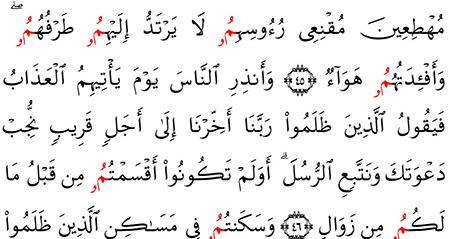 مُهْطِعِينَ مُقْنِعِى رُءُوسِهِمُۥ لَا يَرْتَدُّ إِلَيْهِمُۥ طَرْفُهُمُۥۖ
وَأَفْـِٔدَتُهُمُۥ هَوَآءٌ ﴿٤٥﴾ وَأَنذِرِ النَّاسَ يَوْمَ يَأْتِيهِمُ الْعَذَابُ
فَيَقُولُ الَّذِينَ ظَلَمُوا۟ رَبَّنَا أَخِّرْنَا إِلَىٰ أَجَلٍ قَرِيبٍ نُّجِبْ
دَعْوَتَكَ وَنَتَّبِعِ الرُّسُلَۗ أَوَلَمْ تَكُونُوا۟ أَقْسَمْتُمُۥ مِن قَبْلُ مَا
لَكُمُۥ مِن زَوَالٍ ﴿٤٦﴾ وَسَكَنتُمُۥ فِى مَسَـٰكِنِ الَّذِينَ ظَلَمُوا۟